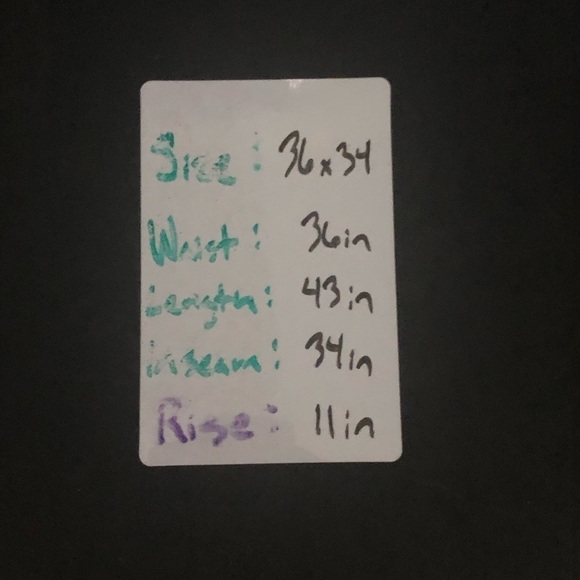 Size: 36x34
Waist: 36in
Length: 43in
inseam: 34in
Rise: 11in